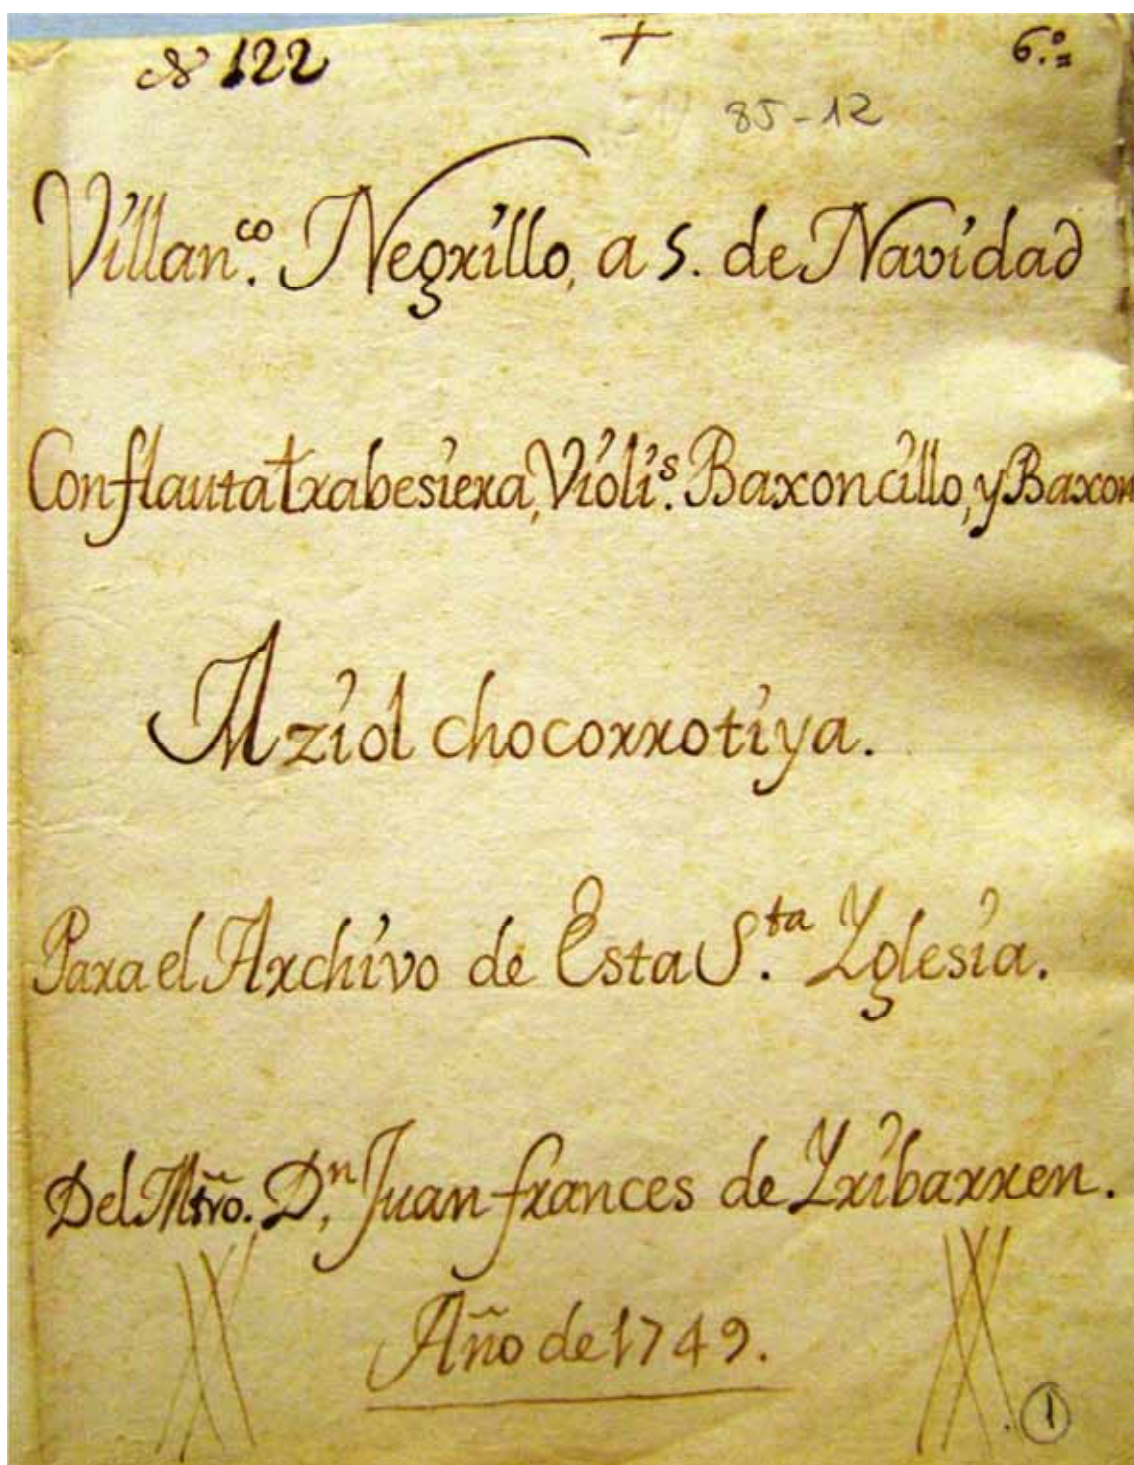 N 122 + 6.º
85-12
Villan.co Negrillo, a 5. de Navidad
Con flauta trabesiera, Violi.s Baxoncillo, y Baxon
Al ziol chocorrotiya.
Para el Archivo de Esta S.ta Yglesia.
Del Mṫro. D.n Juan frances de Yribarren.
Año de 1749.
1